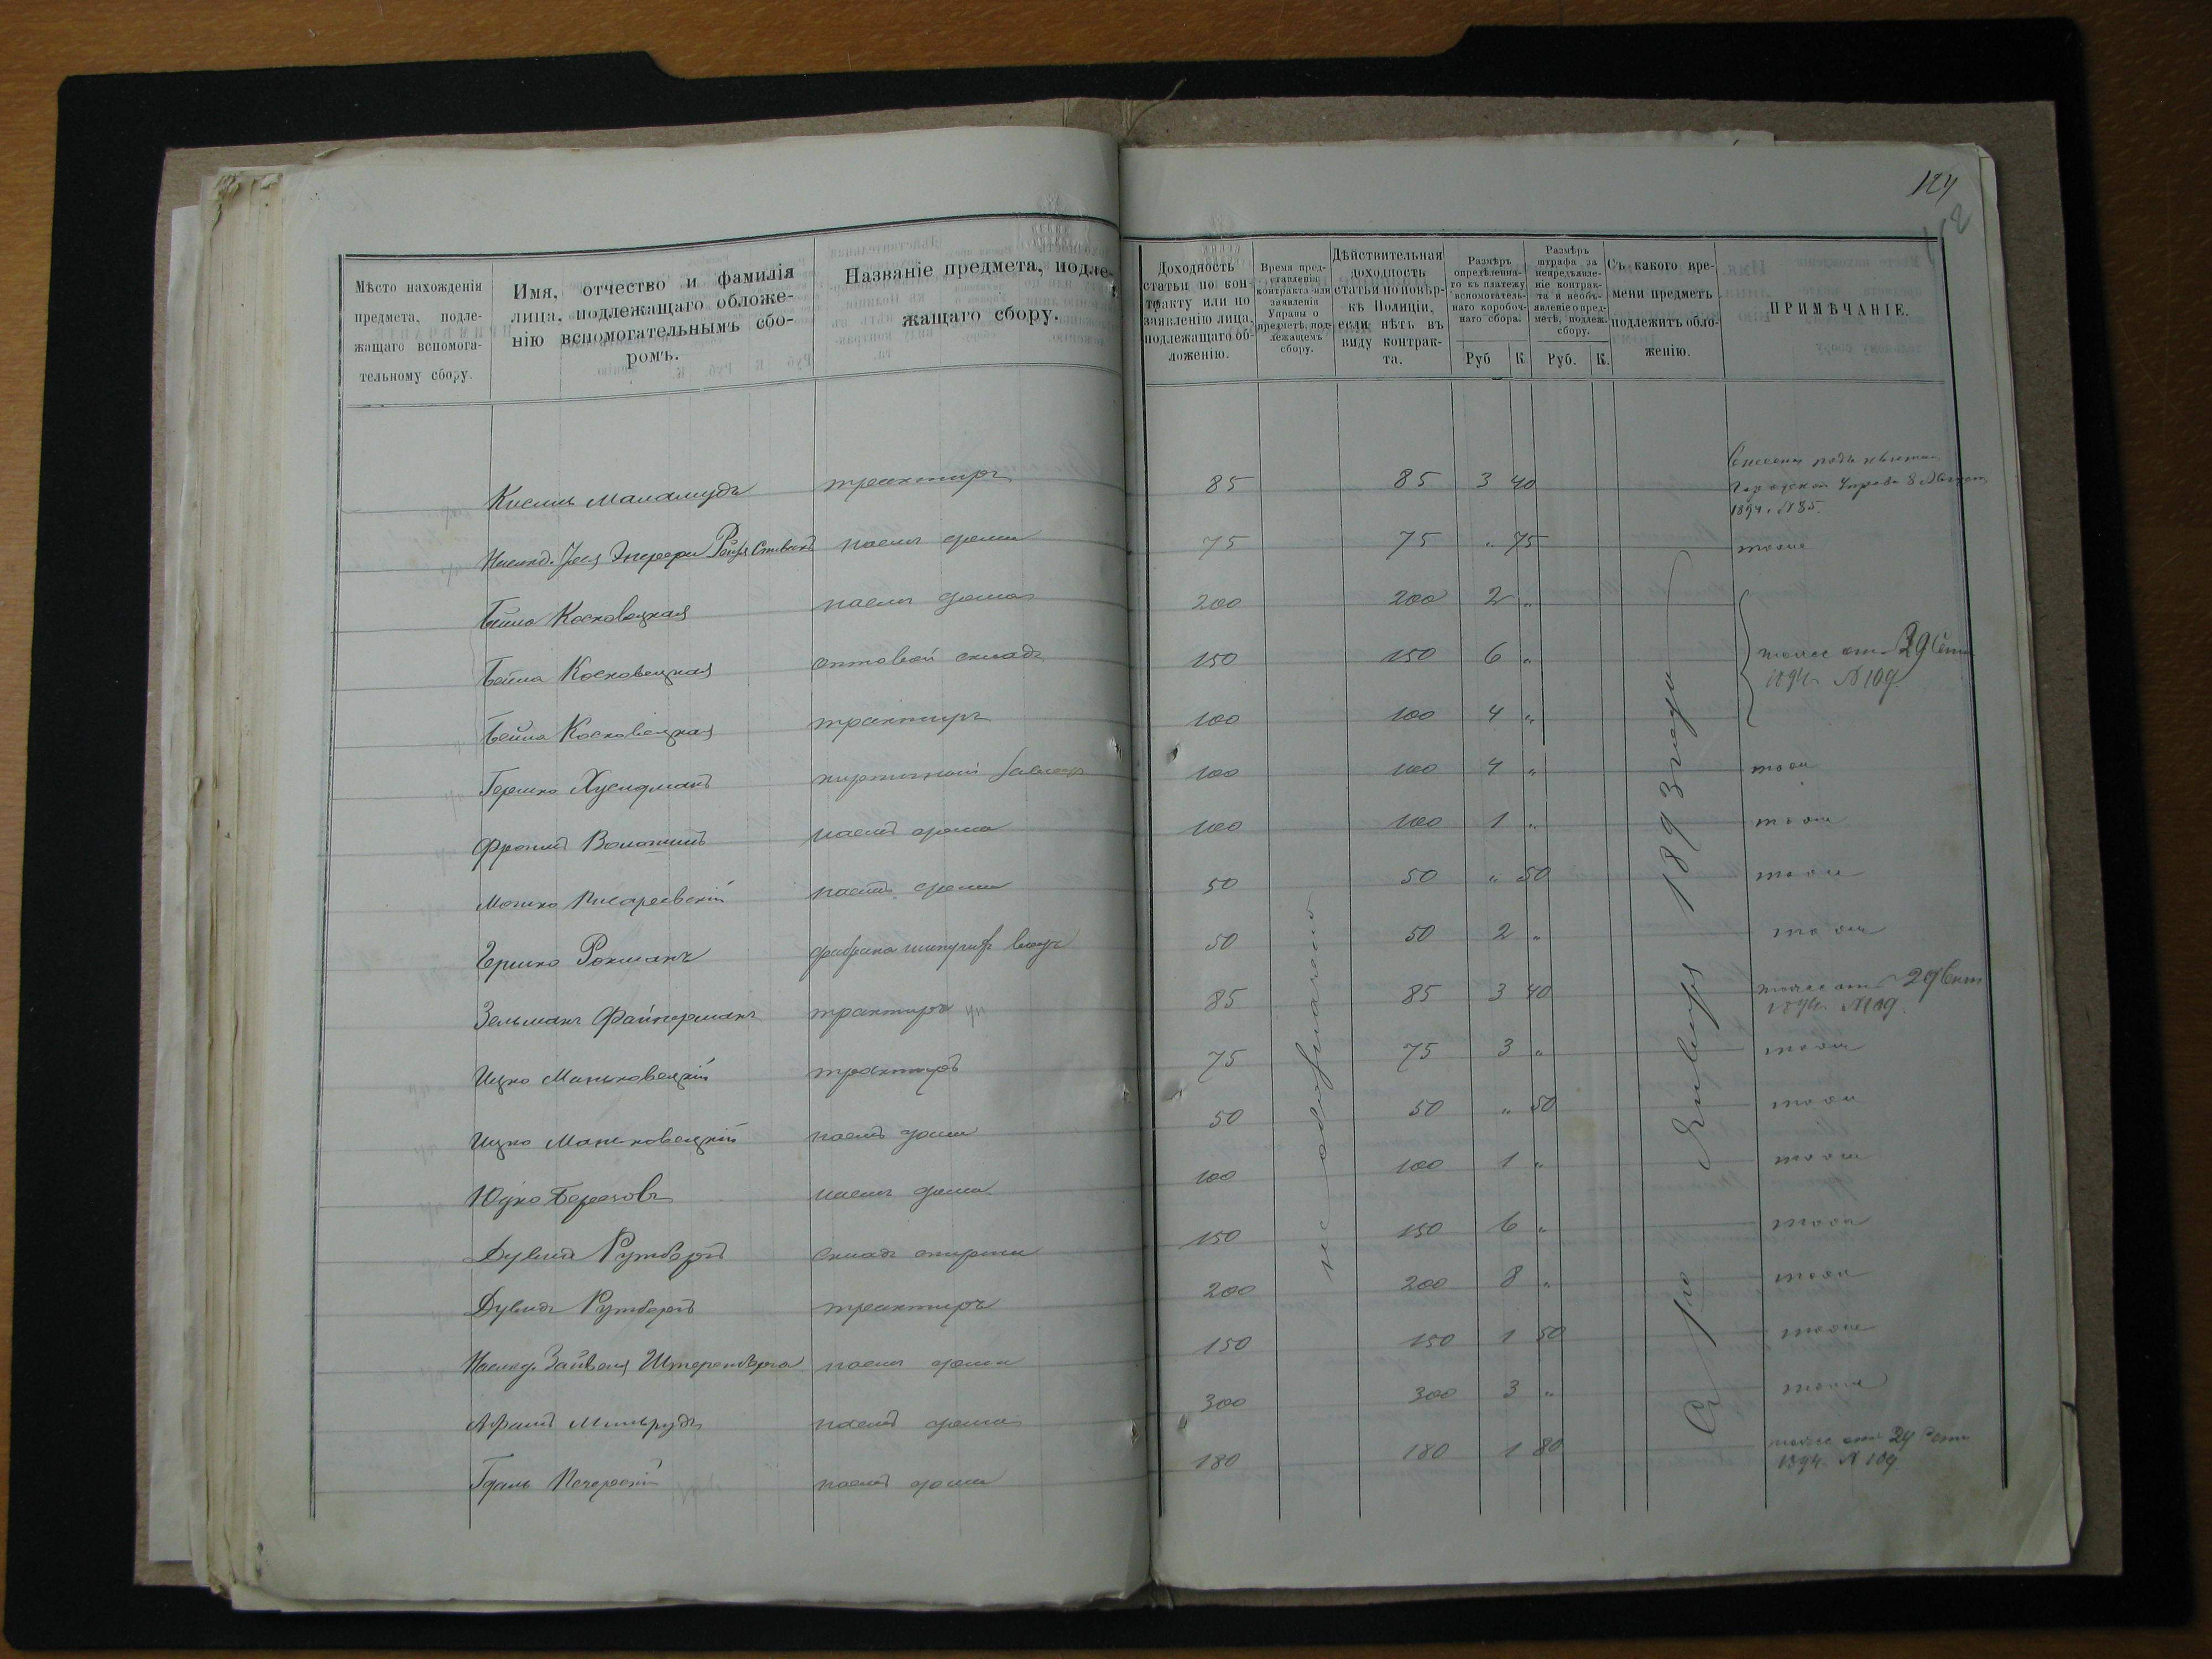 124
Мѣсто нахожденія предмета, подлежащаго вспомогательному сбору.
Имя, отчество и фамилія лица, подлежащаго обложенію вспомогательнымъ сборомъ.
Названіе предмета, подлежащаго сбору.
Доходность статьи по контракту или по заявленію лица, подлежащаго обложенію.
Время представленія контракта или заявленія Управы о предметѣ, подлежащемъ сбору.
Дѣйствительная доходность статьи по повѣркѣ Полиціи, если нѣтъ въ виду контракта.
Размѣръ опредѣленнаго къ платежу вспомогательнаго коробочнаго сбора. Руб К.
Размѣръ штрафа за непредъявленіе контракта и необъявленіе о предметѣ, подлеж. сбору. Руб. К.
Съ какого времени предметъ подлежитъ обложенію.
ПРИМѢЧАНІЕ.
Кисиль Маламудъ трактиръ 85 85 3 40
Городской Управы 8 1894 г. № 85.
Наслѣд. наемъ дома 75 75 " 75 тоже
Бейла Косковецкая наемъ дома 200 200 2 "
Бейла Косковецкая оптовой складъ 150 150 6 " тоже от 29 Сент 1894 г. № 109
Бейла Косковецкая трактиръ 100 100 4 "
Гершко кирпичный заводъ 100 100 4 " тоже
наемъ дома 100 100 1 " тоже
Мошко Писаревскій наемъ дома 50 50 " 50 тоже
Гершко Рохманъ фабрика водъ 50 50 2 " тоже
Зельманъ Файнерманъ трактиръ 85 85 3 40 тоже от 29 Сент 1894 г. № 109.
Ицко Маньковецкій трактиръ 75 75 3 " тоже
Ицко Маньковецкій наемъ дома 50 50 " 50 тоже
Юдко Березовъ наемъ дома 100 100 1 " тоже
Дувидъ Рутбергъ складъ спирта 150 150 6 " тоже
Дувидъ Рутбергъ трактиръ 200 200 8 " тоже
Наслѣд. Зайвеля Штеренберга наемъ дома 150 150 1 50 тоже
наемъ дома 300 300 3 " тоже
Гдаль Печерскій наемъ дома 180 180 1 80 тоже от 29 Сент 1894 г. № 109
не обозначено
С 1го Января 1893 года